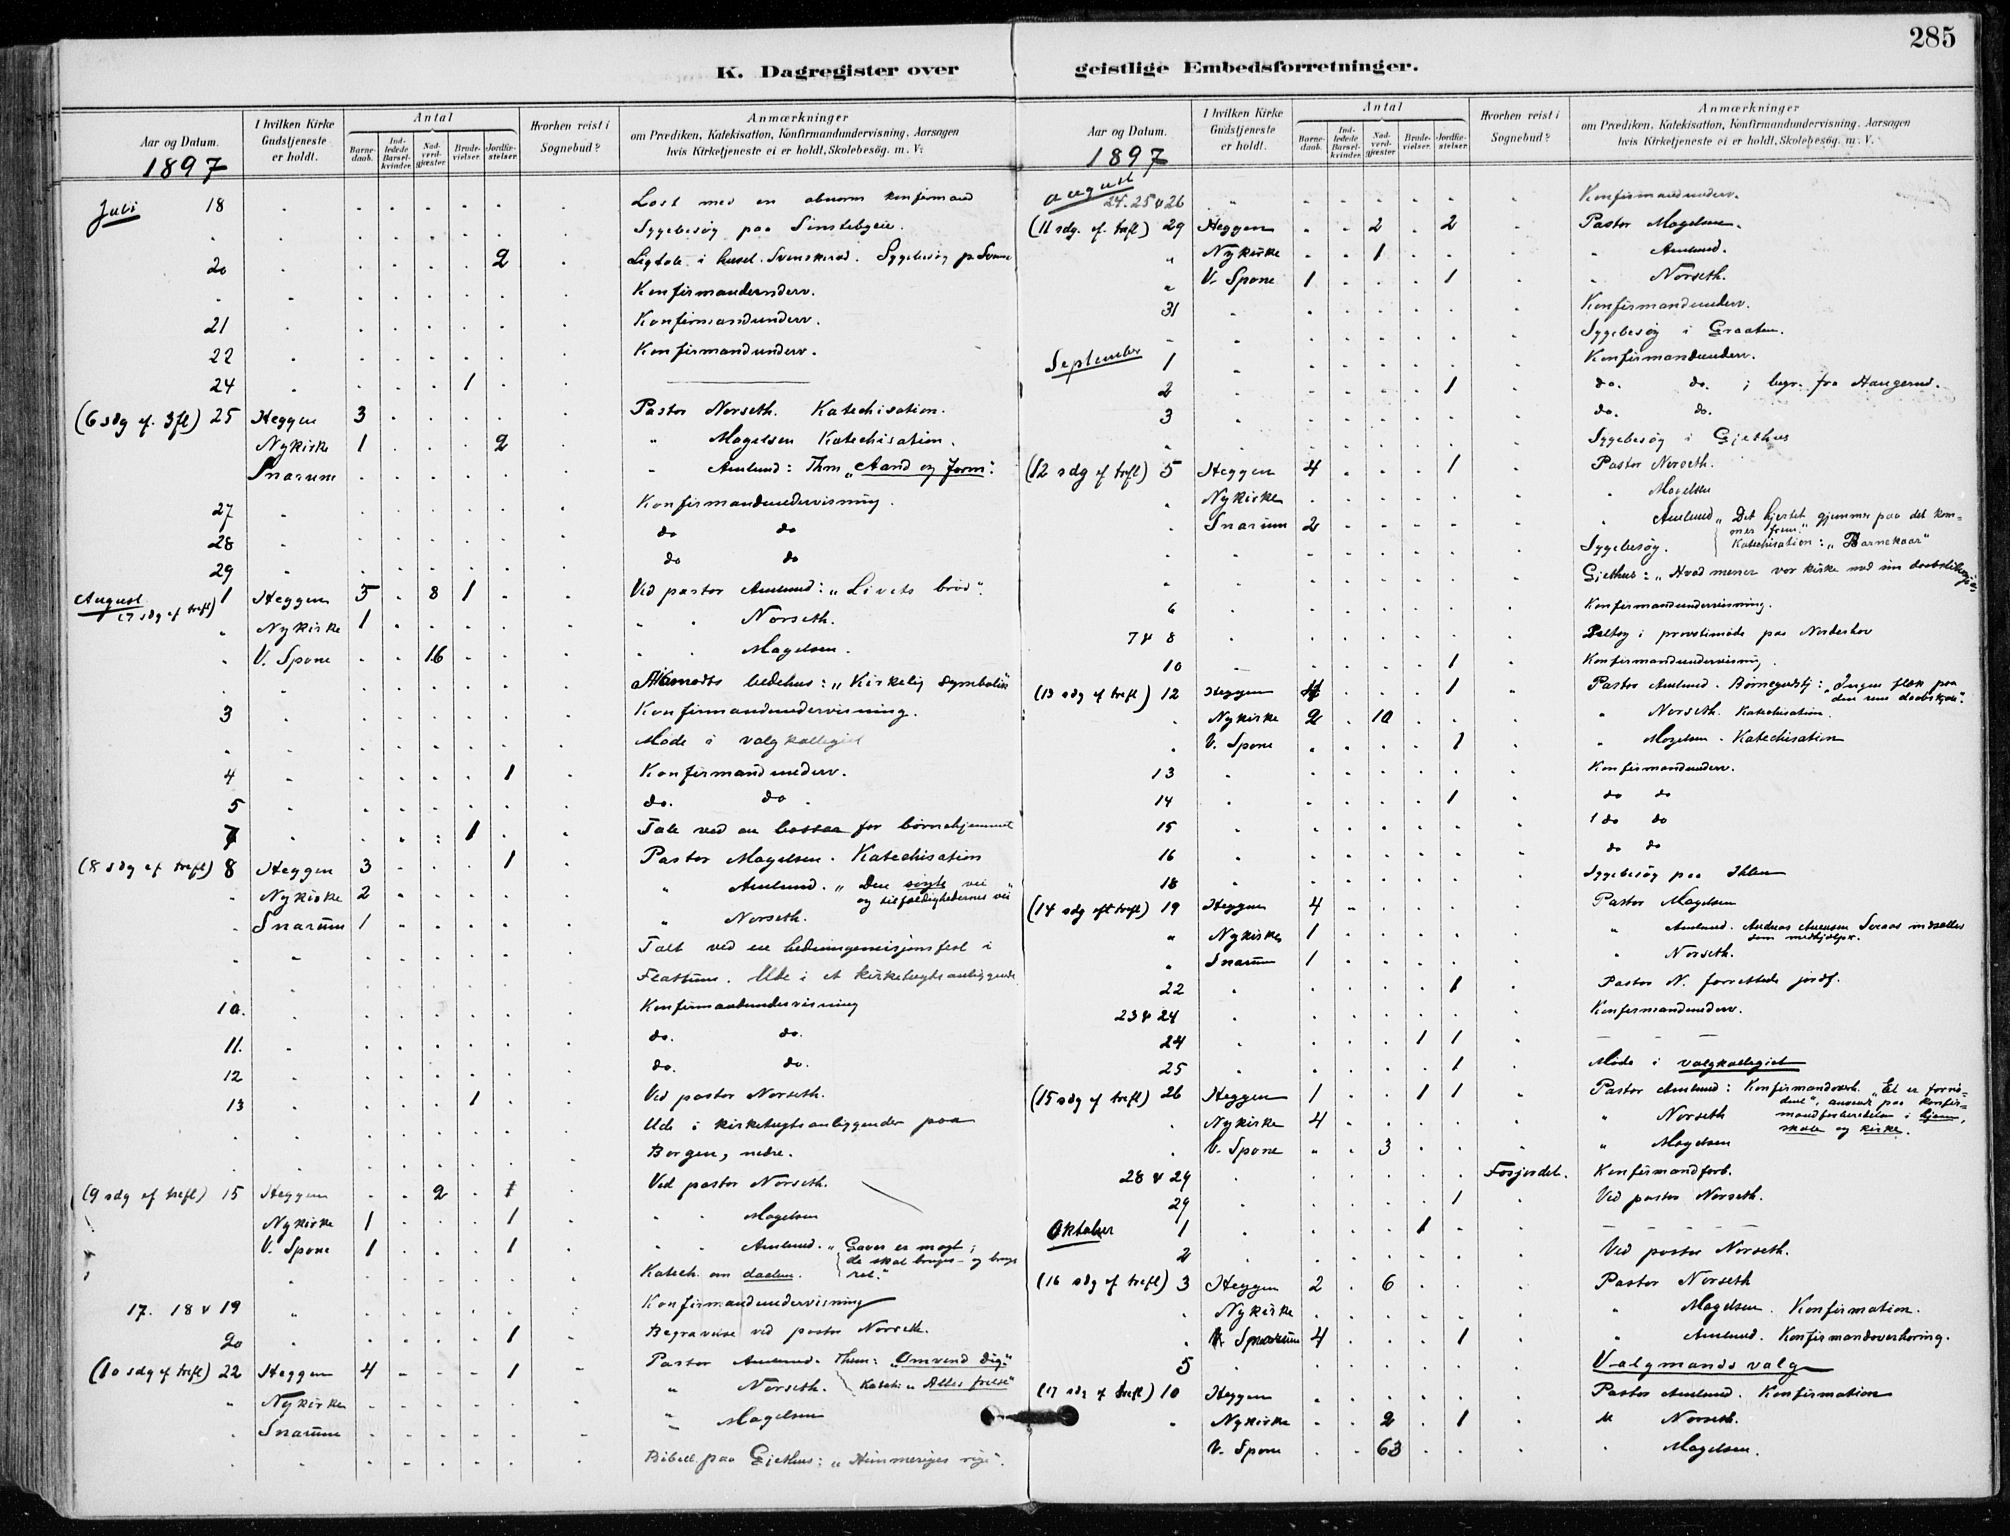 285
K. Dagregister over geistlige Embedsforretninger.
Aar og Datum.
1897
I hvilken Kirke Gudstjeneste er holdt.
Antal
Barnedaab.
Indledede Barselkvinder.
Nadverdgjæster
Brudevielser.
Jordfæstelser.
Hvorhen reist i Sognebud?
Anmærkninger
om Prædiken, Katekisation, Konfirmandundervisning, Aarsagen
hvis Kirketjeneste ei er holdt, Skolebesøg. m. V.
Juli 18 . . . . . . . Læst med en abnorm konfirmand
. . . . . . . Sygebesøg paa
20 . . . . . 2 . Ligtale i huset. Sygebesøg
. . . . . . . Konfirmandunderv.
21 . . . . . . . Konfirmandunderv.
22 . . . . . . . Konfirmandunderv.
24 . . . . 1 . .
(6 sdg ef. 3fl) 25 Heggen 3 . . . . . Pastor Norseth. Katechisation.
Nykirke 1 . . . 2 . " Magelsen Katechisation.
Snarum . . . . . . " Amlund: Thm "Aand og form".
27 . . . . . . . Konfirmandundervisning.
28 . . . . . . . do do
29 . . . . . . . do do
August (7 sdg ef trefl) 1 Heggen 5 . 8 1 . . Ved pastor Amlund: "Livets brød".
" Nykirke 1 . . . . . " . Norseth.
" V. Spone . . 16 . . . " . Magelsen.
. . . . . . . bedehus: "Kirkelig symbolik"
3 . . . . . . . Konfirmandundervisning.
" . . . . . . . Møde i valgkollegiet
4 . . . . . 1 . Konfirmandunderv.
5 . . . . . . . do. do.
7 . . . . 1 . . Tale ved en bassar for børnehjemmet
(8 sdg ef trefl) 8 Heggen 3 . . . 1 . Pastor Magelsen. Katechisation
. Nykirke 2 . . . . . " Amlund. "Den vei
og tilfældighedernes vei"
. Snarum 1 . . . . . " Norseth.
. . . . . . . Talt ved en hedningemisjonsfest i
. . . . . . . Ude i et
10. . . . . . . . Konfirmandundervisning
11. . . . . . . . do. do.
12 . . . . . . . do. do.
13 . . . . 1 . . Ved pastor Norseth.
. . . . . . . Ude i kirketugtsanliggender paa
. . . . . . . Borgen, nedre.
(9 sdg ef trefl) 15 Heggen . . 2 . 1 . Ved pastor Norseth.
Nykirke 1 . . . 1 . " . Magelsen
V. Spone 1 . . . 1 . " . Amlund. "Gaver er magt;
de skal bruges - og bruges
ret."
Katech. om daaben.
17. 18 & 19 . . . . . . . Konfirmandundervisning
20 . . . . . 1 . Begravelse ved pastor Norseth.
(10 sdg ef trefl) 22 Heggen 4 . . . 1 . Pastor Amlund. Thm: "Omvend dig."
" Nykirke . . . . . . " Norseth.
. Snarum . . . . . . " Magelsen
. . . . . . . Bibell. paa Gjethus: "Himmeriges rige".
Aar og Datum.
1897
I hvilken Kirke Gudstjeneste er holdt.
Antal
Barnedaab.
Indledede Barselkvinder.
Nadverdgjæster
Brudevielser.
Jordfæstelser.
Hvorhen reist i Sognebud?
Anmærkninger
om Prædiken, Katekisation, Konfirmandundervisning, Aarsagen
hvis Kirketjeneste ei er holdt, Skolebesøg. m. V.
August 24. 25 & 26 . . . . . . . Konfirmandunderv.
(11 sdg. ef. trefl) 29 Heggen . . 2 . 2 . Pastor Magelsen.
" Nykirke . . 1 . . . " Amlund.
" V. Spone 1 . . . 1 . " Norseth.
31 . . . . . . . Konfirmandunderv.
. . . . . . . Sygebesøg i Graaten.
September 1 . . . . . . . Konfirmandunderv.
2 . . . . . 1 . do. do. ; begr. fra Haugerud.
3 . . . . . . . do. do.
. . . . . . . Sygebesøg i Gjethus
(12 sdg ef trefl) 5 Heggen 4 . . . 1 . Pastor Norseth.
. Nykirke . . . . . . " Magelsen
. Snarum 2 . . . . . " Amlund "Det hjertet gjemmer paa det kommer
frem."
Katechisation: "Barnekaar"
. . . . . . . Sygebesøg.
. . . . . . . Gjethus: "Hvad mener vor kirke med sin
6 . . . . . . . Konfirmandundervisning.
7 & 8 . . . . . . . Deltog i provstimøde paa Norderhov
10 . . . . . 1 . Konfirmandundervisning.
(13 sdg ef trefl) 12 Heggen 4 . . . 1 . Pastor Amlund. Børnegudstj: "Ingen flæk paa
den rene daabskjole".
. Nykirke 2 . 10 . . . " Norseth. Katechisation.
. V. Spone . . . . 1 . " Magelsen. Katechisation
13 . . . . . . . Konfirmandunderv.
14 . . . . . 1 . do do
15 . . . . . . . do do
16 . . . . . . . do do
18 . . . . . . . Sygebesøg paa Ihlen
(14 sdg eft trefl) 19 Heggen 4 . . . . . Pastor Magelsen
" Nykirke 1 . . . . . " Amlund. indsattes
som medhjælper.
" Snarum 1 . . . . . " Norseth.
22 . . . . . 1 . Pastor N. forrettede jordf.
23 & 24 . . . . . . . Konfirmandunderv.
24 . . . . 1 1 .
25 . . . . . 1 . Møde i valgkollegiet
(15 sdg ef trefl) 26 Heggen 1 . . 1 1 . Pastor Amlund: Konfirmandoverh. "Et er fornødent",
anvendt paa konfirmandforberedelsen i hjem,
skole og kirke.
. Nykirke 4 . . . . . " Norseth
. V. Spone . . 3 . . . " Magelsen
28 & 29 . . . . . . Fosjordet. Konfirmandforb.
29 . . . . . 1 . Ved pastor Norseth.
Oktober 1 . . . . 1 . .
2 . . . . . . . Ved pastor Norseth.
(16 sdg ef trefl) 3 Heggen 2 . 6 . . . Pastor Norseth
. Nykirke . . . . . . " Magelsen. Konfirmation.
. Snarum 4 . . . 1 . " Amlund. Konfirmandoverhøring.
5 . . . . . . . Valgmandsvalg
(17 sdg ef trefl) 10 Heggen . . . . . . Pastor Amlund. Konfirmation
" Nykirke . . 2 . 1 . " Norseth.
V. Spone . . 63 . . . " Magelsen.